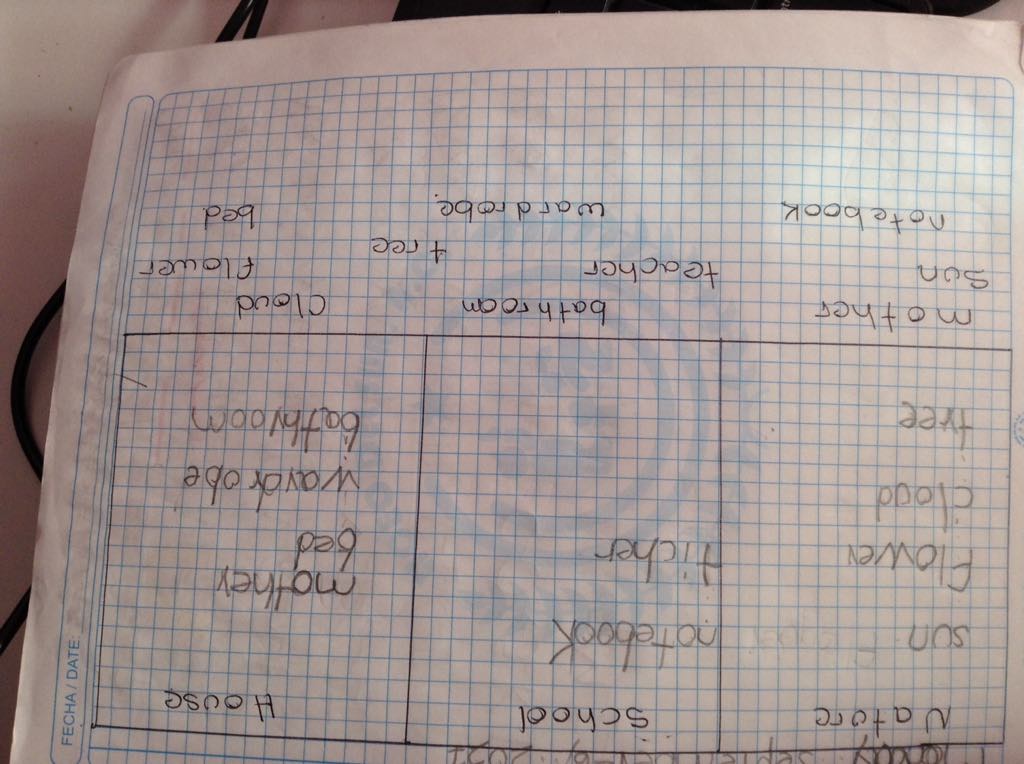 FECHA / DATE:
Nature School House
sun notebook
mother
Flower ticher bed
cloud wardrobe
tree bathroom
mother bathroom Cloud
Sun teacher Flower
tree
notebook wardrobe bed